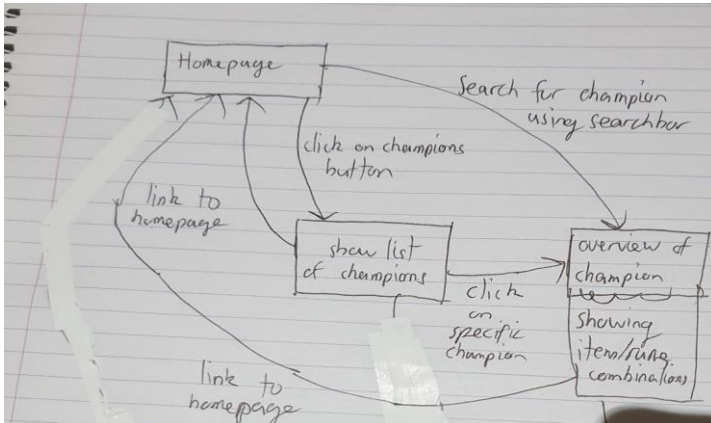 Homepage
Search for champion
using searchbar
click on champions
button
link to
homepage
show list
of champions
overview of
champion
click
on
specific
champion
showing
item/rune
combinations
link to
homepage